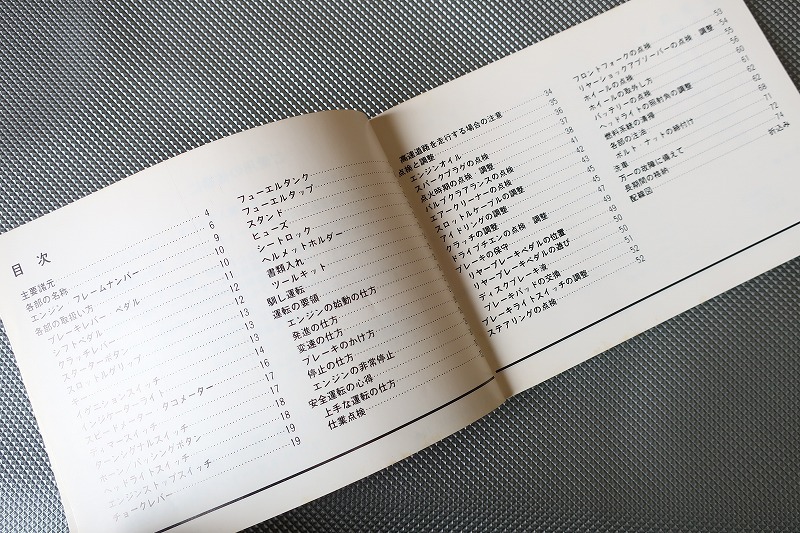 目次
主要諸元 4
各部の名称 6
エンジン フレームナンバー 9
各部の取扱い方 10
ブレーキレバー ペダル 10
シフトペダル 11
クラッチレバー 12
スターターボタン 12
スロットルグリップ 13
キー 13
イグニションスイッチ 13
インジケーターライト 14
スピードメーター タコメーター 16
ディマースイッチ 17
ターンシグナルスイッチ 17
ホーン/パッシングボタン 18
ヘッドライトスイッチ 18
エンジンストップスイッチ 19
チョークレバー 19
フューエルタンク
フューエルタップ
スタンド
ヒューズ
シートロック
ヘルメットホルダー
書類入れ
ツールキット
馴し運転
運転の要領
エンジンの始動の仕方
発進の仕方
変速の仕方
ブレーキのかけ方
停止の仕方
エンジンの非常停止
安全運転の心得
上手な運転の仕方
仕業点検
高速道路を走行する場合の注意 34
点検と調整 35
エンジンオイル 36
スパークプラグの点検 37
点火時期の点検 調整 38
バルブクリアランスの点検 41
エアークリーナーの点検 42
スロットルケーブルの調整 43
アイドリングの調整 45
クラッチの調整 45
ドライブチエンの点検 調整 47
ブレーキの保守 49
リヤーブレーキペダルの位置 49
リヤーブレーキペダルの遊び 50
ディスクブレーキ液 50
ブレーキパッドの交換 51
ブレーキライトスイッチの調整 52
ステアリングの点検 52
フロントフォークの点検 53
リヤーショックアブソーバーの点検 調整 54
ホイールの点検 55
ホイールの取外し方 56
バッテリーの点検 60
ヘッドライトの照射角の調整 61
燃料系統の清掃 62
各部の注油 62
ボルト ナットの締付け 68
洗車 71
万一の故障に備えて 72
長期間の格納 74
配線図 折込み